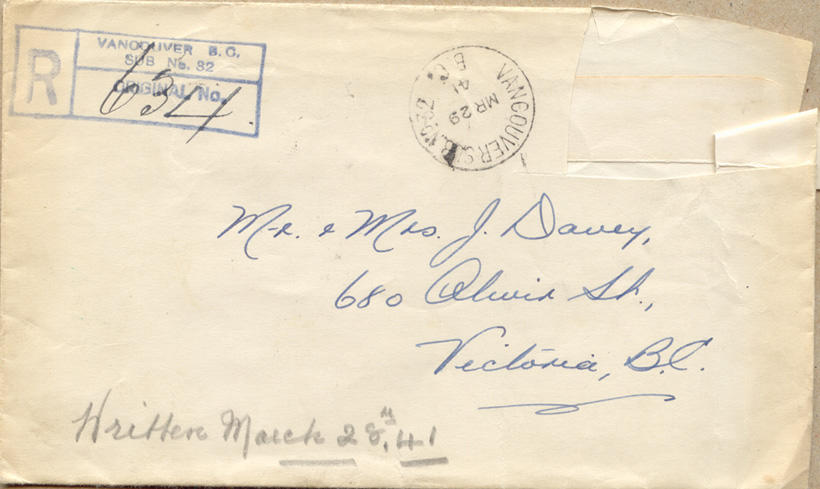 R
VANCOUVER B.C.
SUB No. 32
ORIGINAL No.
634
VANCOUVER SUB. No 32
B.C.
MR 29
41
Mr. & Mrs. J. Davey,
680 St.,
Victoria, B.C.
Written March 28th, 41